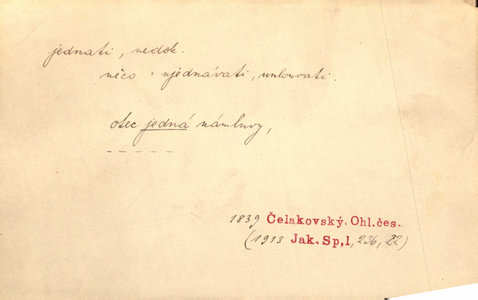 jednati, nedok.
něco = ujednávati, umlouvati.
otec jedná námluvy,
1839 Čelakovský. Ohl.čes.
(1913 Jak. Sp,1,236,22)